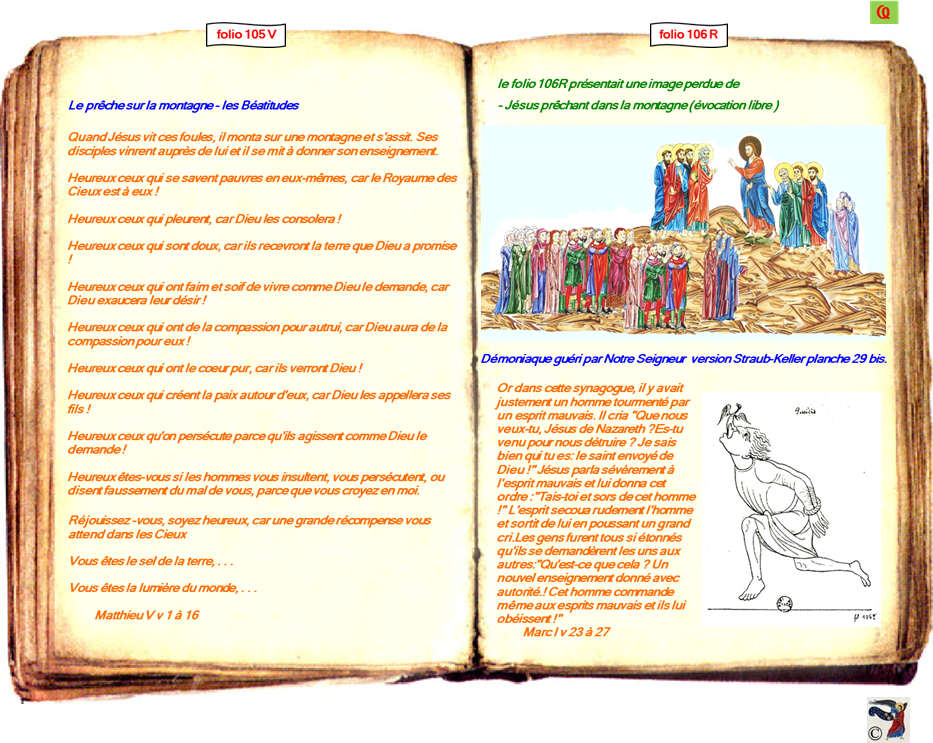 folio 105 V
Le prêche sur la montagne - les Béatitudes
Quand Jésus vit ces foules, il monta sur une montagne et s'assit. Ses
disciples vinrent auprès de lui et il se mit à donner son enseignement.
Heureux ceux qui se savent pauvres en eux-mêmes, car le Royaume des
Cieux est à eux !
Heureux ceux qui pleurent, car Dieu les consolera !
Heureux ceux qui sont doux, car ils recevront la terre que Dieu a promise
!
Heureux ceux qui ont faim et soif de vivre comme Dieu le demande, car
Dieu exaucera leur désir !
Heureux ceux qui ont de la compassion pour autrui, car Dieu aura de la
compassion pour eux !
Heureux ceux qui ont le coeur pur, car ils verront Dieu !
Heureux ceux qui créent la paix autour d'eux, car Dieu les appellera ses
fils !
Heureux ceux qu'on persécute parce qu'ils agissent comme Dieu le
demande !
Heureux êtes-vous si les hommes vous insultent, vous persécutent, ou
disent faussement du mal de vous, parce que vous croyez en moi.
Réjouissez -vous, soyez heureux, car une grande récompense vous
attend dans les Cieux
Vous êtes le sel de la terre, . . .
Vous êtes la lumière du monde, . . .
Matthieu V v 1 à 16
folio 106 R
le folio 106R présentait une image perdue de
- Jésus prêchant dans la montagne (évocation libre )
Démoniaque guéri par Notre Seigneur version Straub-Keller planche 29 bis.
Or dans cette synagogue, il y avait
justement un homme tourmenté par
un esprit mauvais. Il cria "Que nous
veux-tu, Jésus de Nazareth ?Es-tu
venu pour nous détruire ? Je sais
bien qui tu es: le saint envoyé de
Dieu !" Jésus parla sévèrement à
l'esprit mauvais et lui donna cet
ordre :"Tais-toi et sors de cet homme
!" L'esprit secoua rudement l'homme
et sortit de lui en poussant un grand
cri.Les gens furent tous si étonnés
qu'ils se demandèrent les uns aux
autres:"Qu'est-ce que cela ? Un
nouvel enseignement donné avec
autorité.! Cet homme commande
même aux esprits mauvais et ils lui
obéissent !"
Marc I v 23 à 27
©